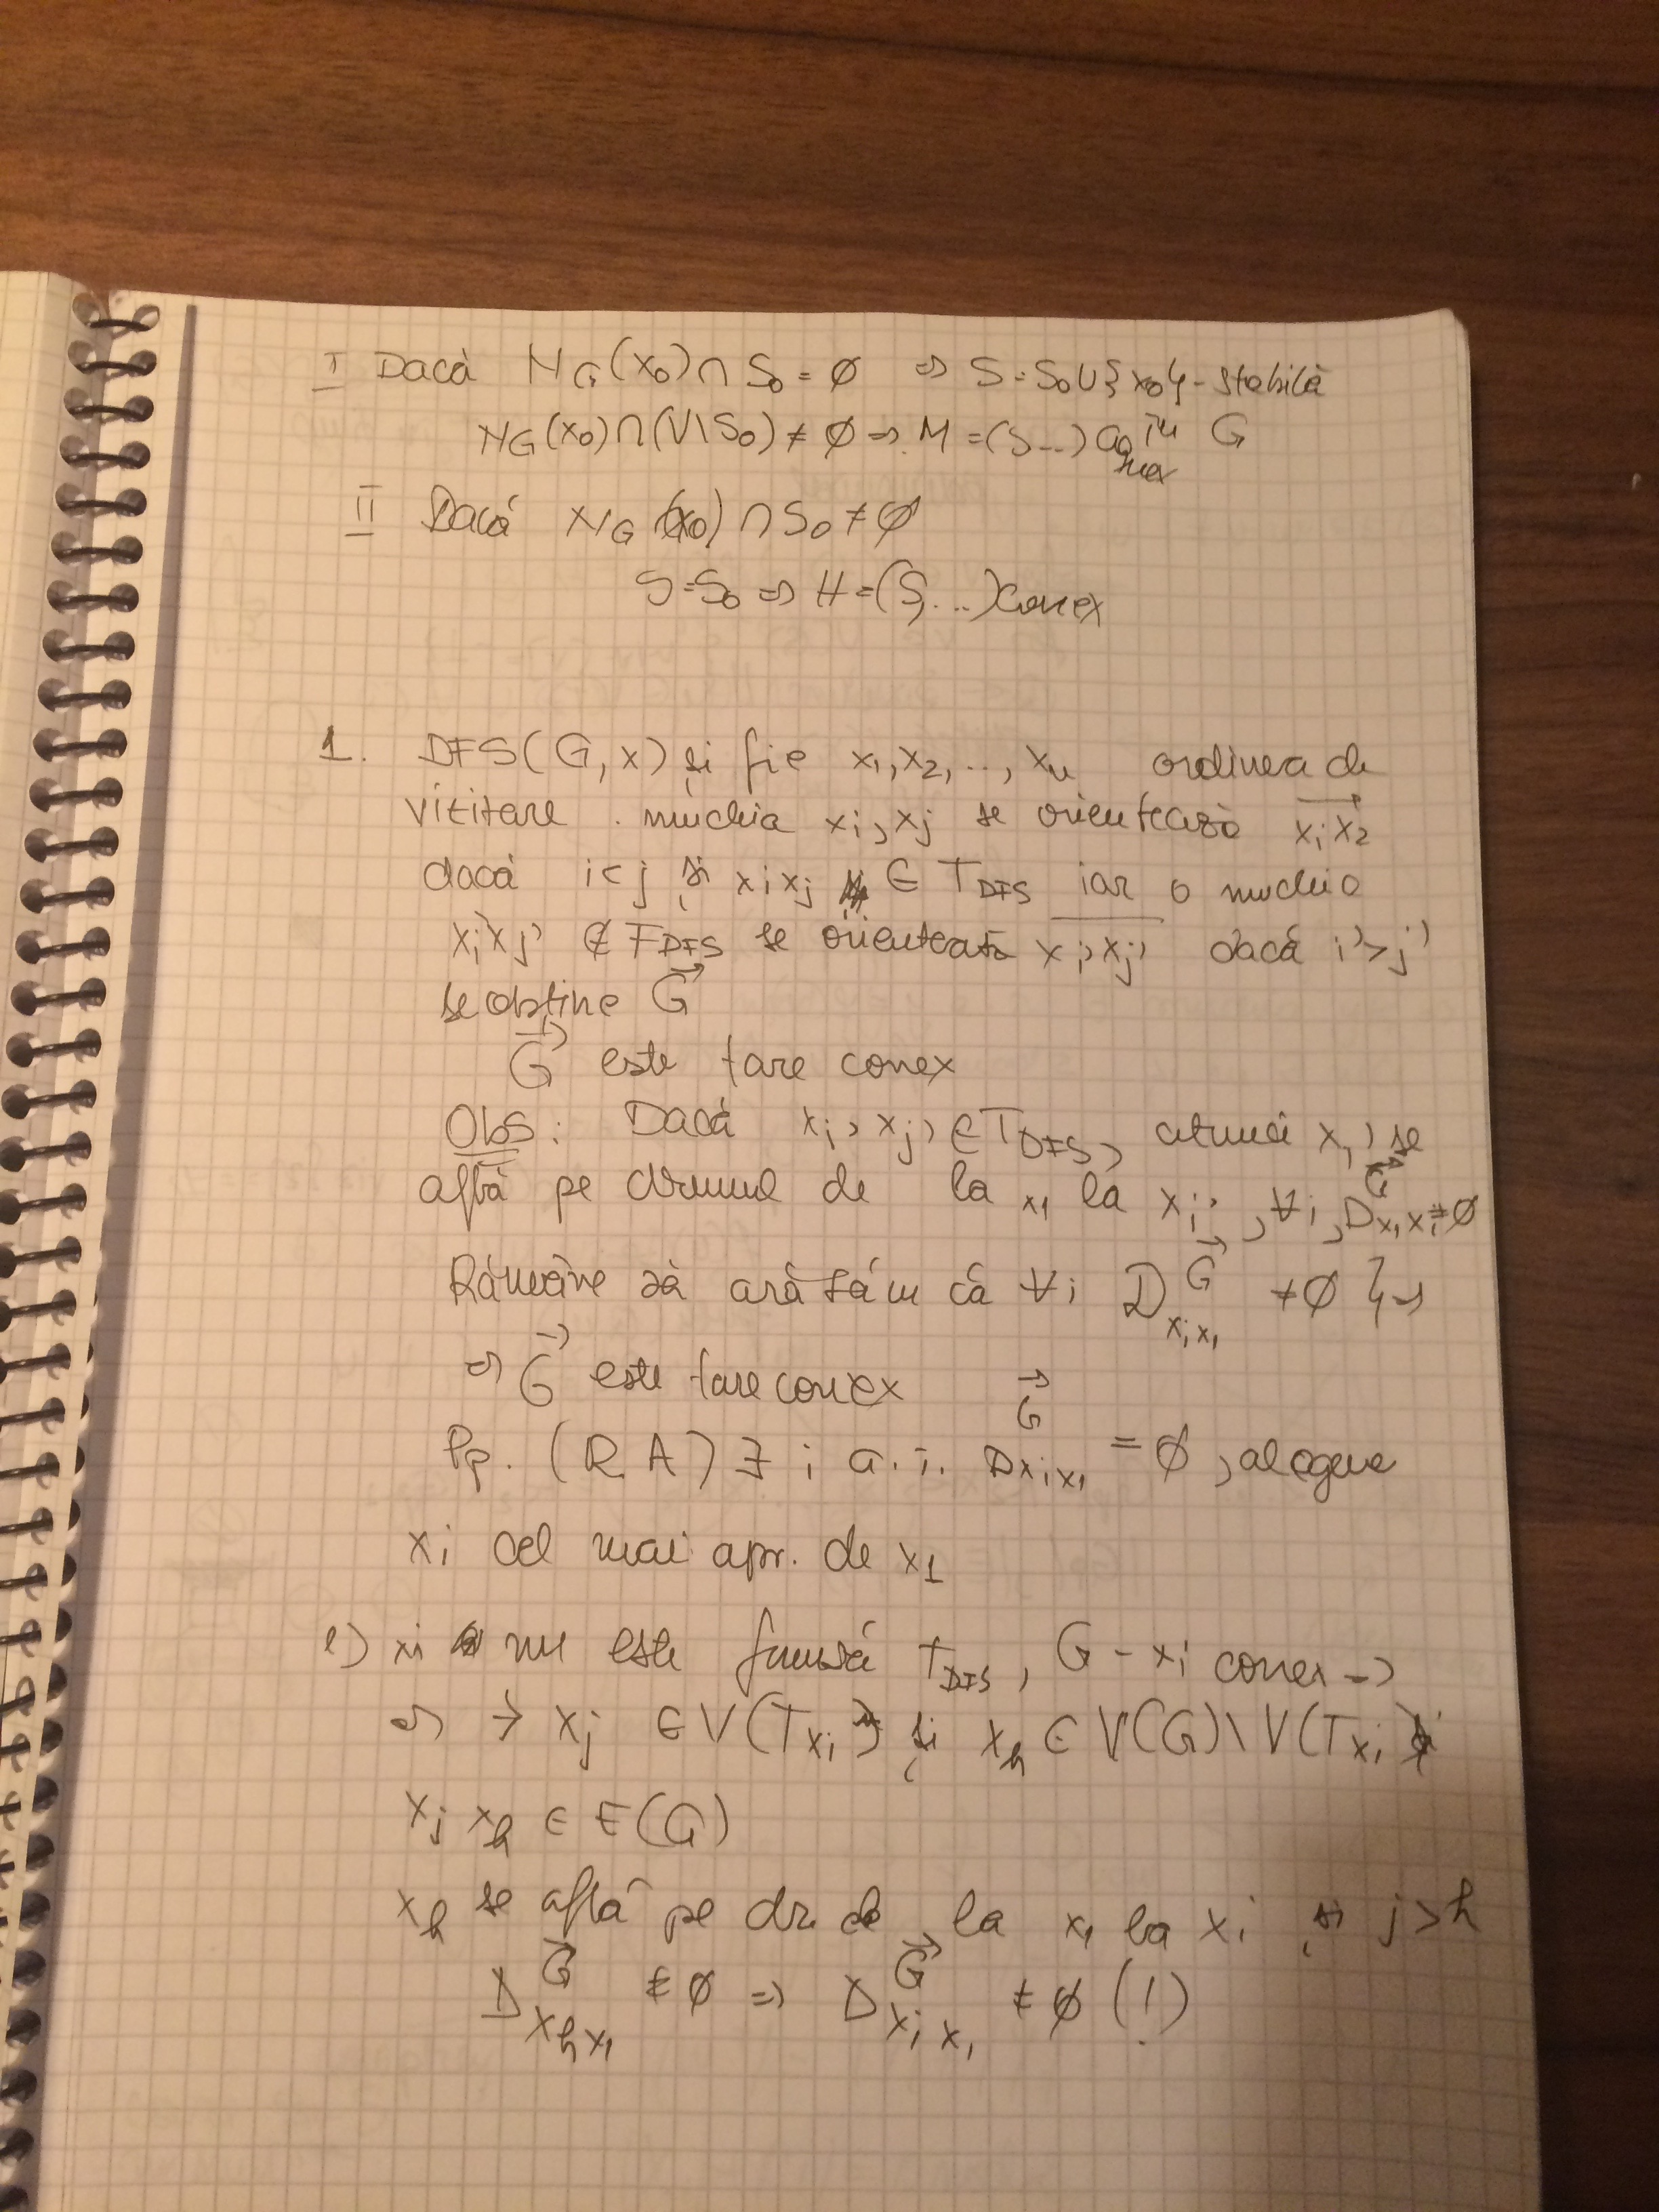 I Dacă N_G(x₀) ∩ S₀ = ∅ ⇒ S = S₀ ∪ {x₀} - stabilă
N_G(x₀) ∩ (V \ S₀) ≠ ∅ ⇒ H = (S...) în G
II Dacă N_G(x₀) ∩ S₀ ≠ ∅
S = S₀ ⇒ H = (S, ...) conex
1. DFS(G, x) și fie x₁, x₂, ..., xₙ ordinea de
vizitare. muchia xᵢ, xⱼ se orientează x₁x₂→
dacă i < j și xᵢxⱼ ∈ T_DFS iar o muchie
xᵢ'xⱼ' ∉ T_DFS se orientează xᵢ'xⱼ' dacă i' > j'
se obține G→
G→ este tare conex
Obs: Dacă xᵢ, xⱼ, ∈ T_DFS, atunci xⱼ' se
află pe drumul de la x₁ la xᵢ', ∀i, D^G→_x₁xᵢ ≠ ∅
Rămâne să arătăm că ∀i D^G→_xᵢx₁ ≠ ∅ } ⇒
⇒ G→ este tare conex
Pp. (R.A) ∃ i a.î. D^G→_xᵢx₁ = ∅, alegem
xᵢ cel mai apr. de x₁
1) xᵢ nu este frunză T_DFS, G - xᵢ conex ⇒
⇒ ∃ xⱼ ∈ V(T_xᵢ) și x_h ∈ V(G) \ V(T_xᵢ)
xⱼ x_h ∈ E(G)
x_h se află pe dr. de la x₁ la xᵢ și j > h
D^G→_x_h x₁ ≠ ∅ ⇒ D^G→_xᵢ x₁ ≠ ∅ (!)